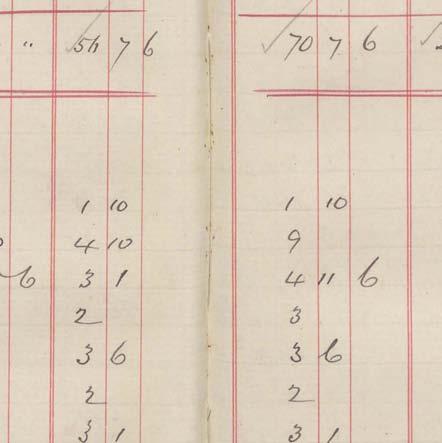 " 54 7 6 70 7 6
1 10 1 10
4 10 9
6 3 1 4 11 6
2 3
3 6 3 6
2 2
3 1 3 1